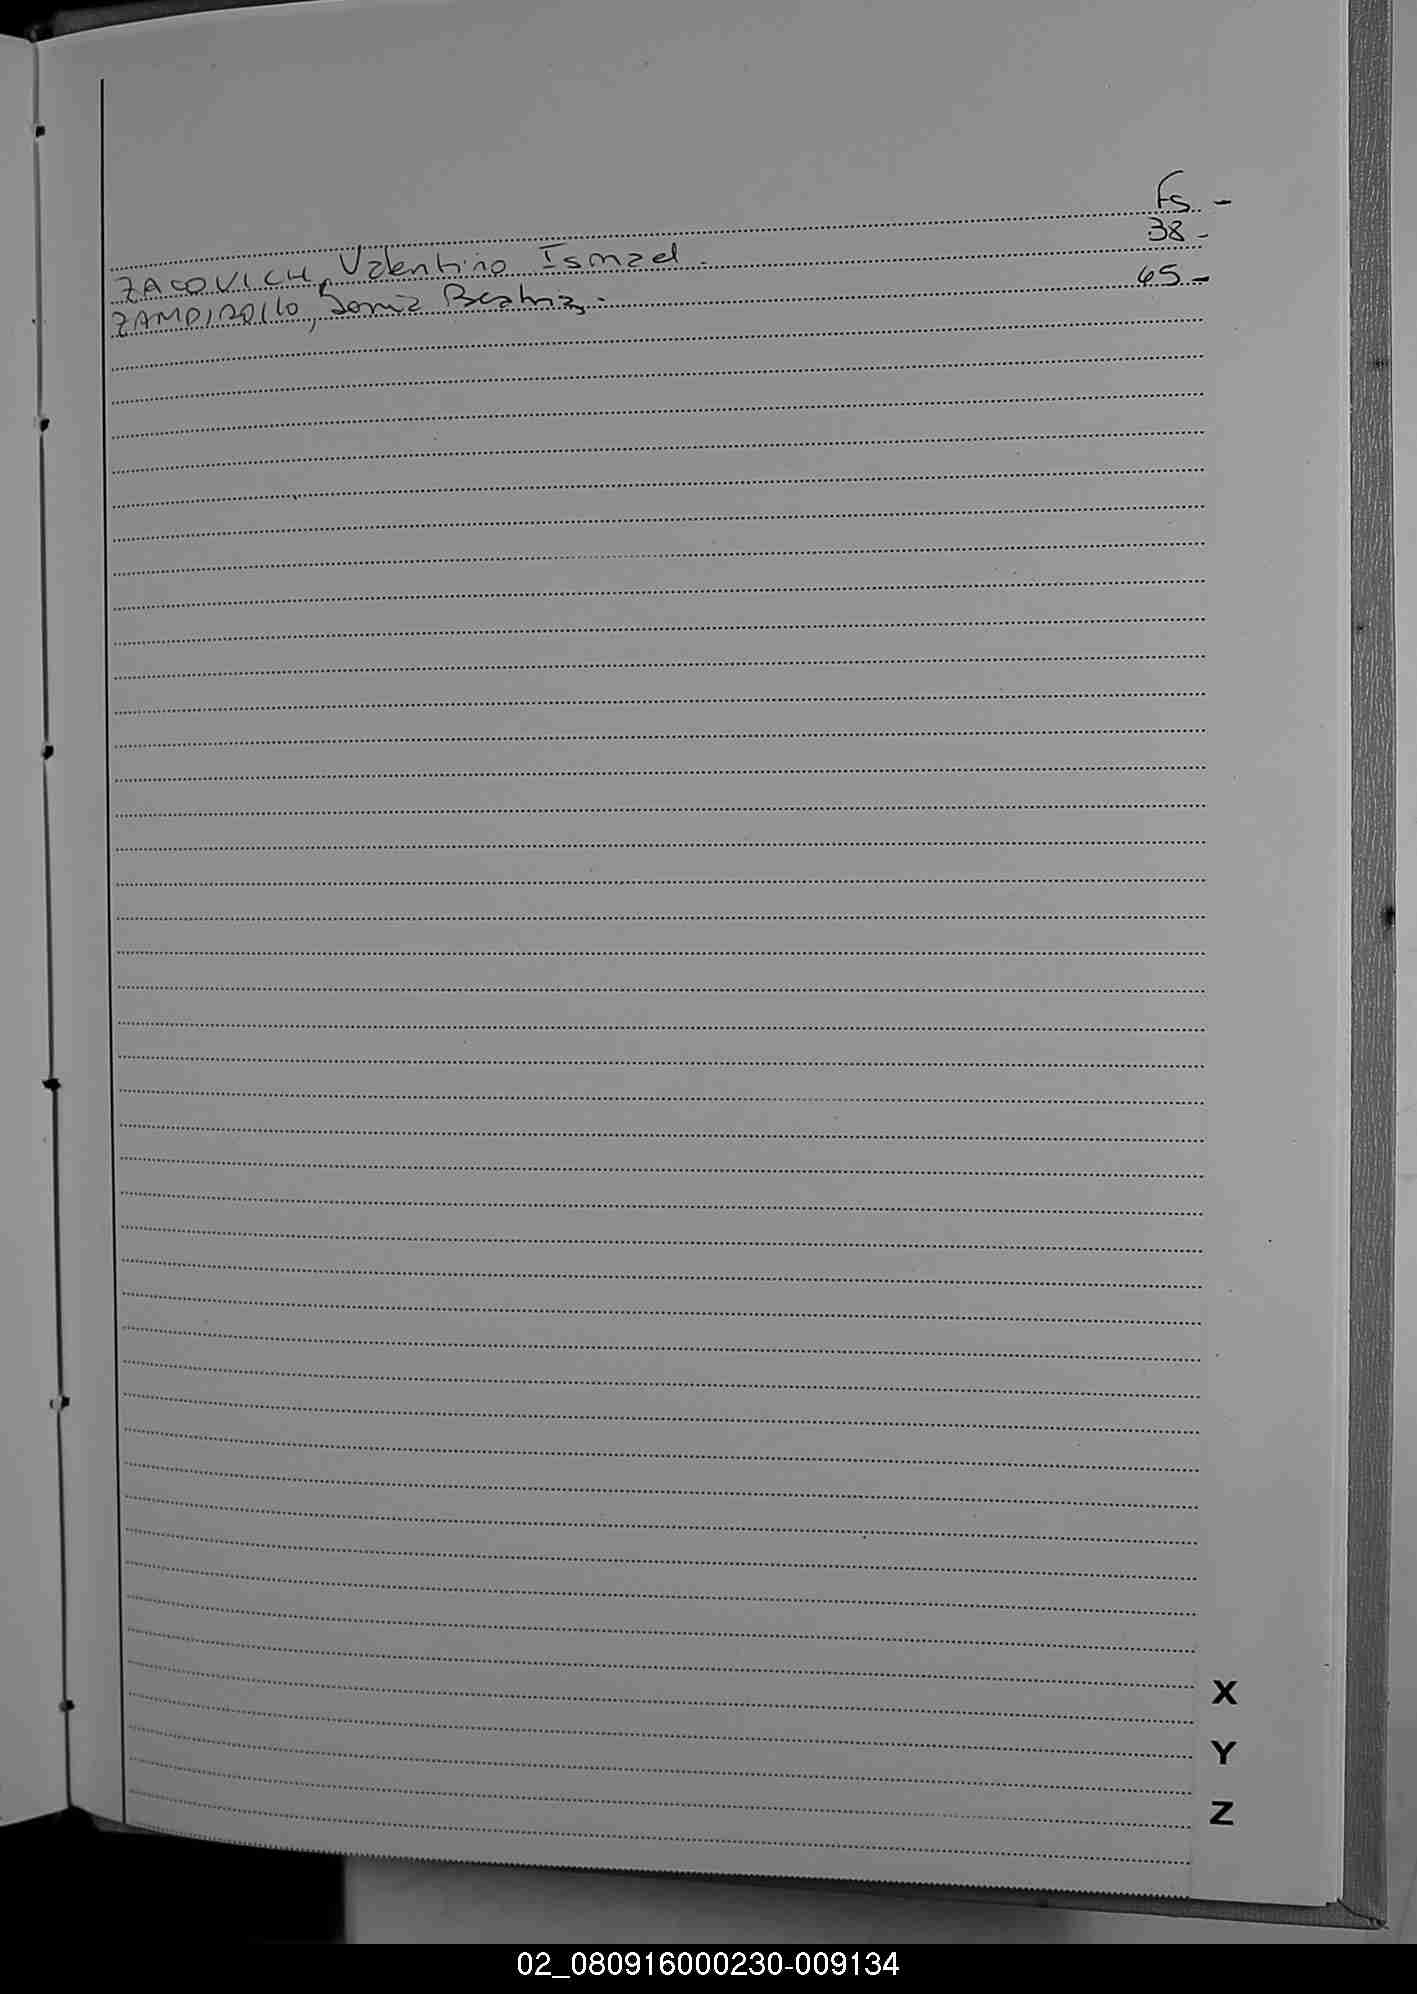 Fs. -
ZACOVICH, Valentino Ismael. 38-
Sonia Beatriz. 65-
X
Y
Z
02_080916000230-009134